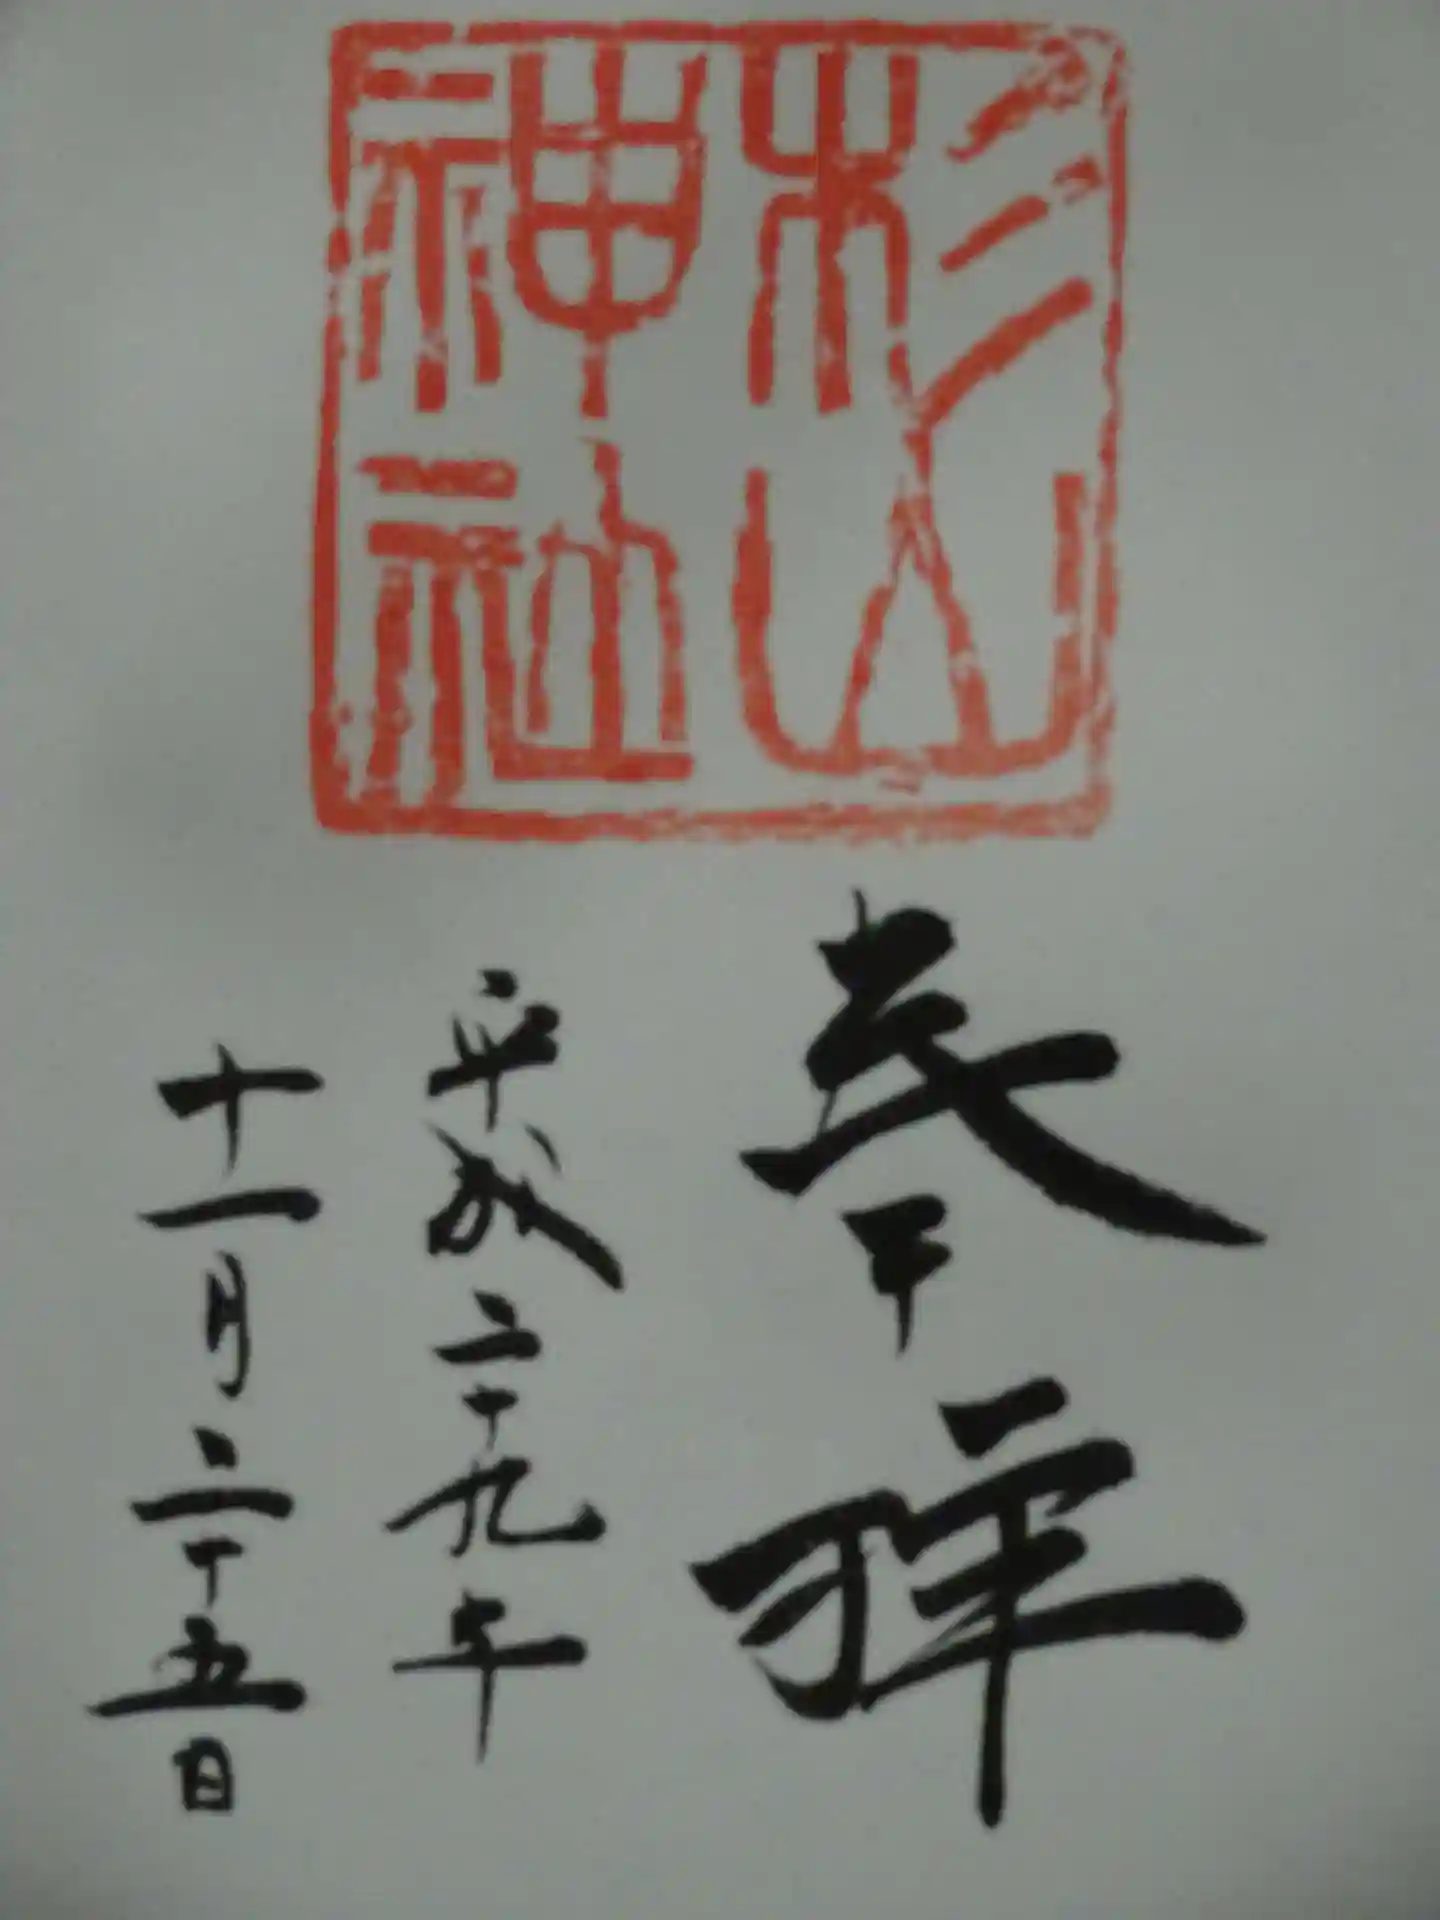 杉山
神社
参拝
平成二十九年
十一月二十五日